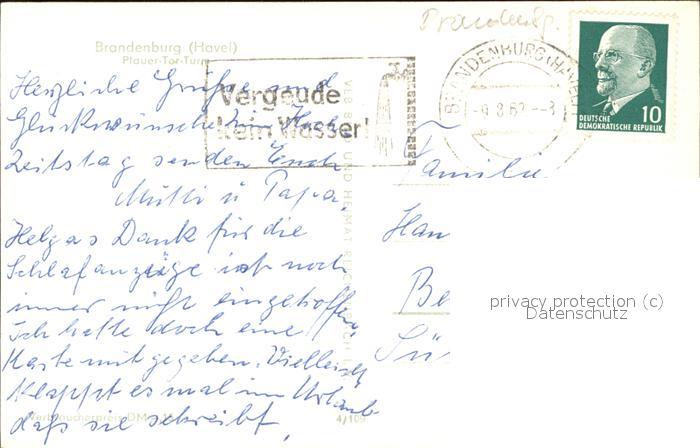 Brandenburg
Brandenburg (Havel)
Plauer-Tor-Turm
Vergeude
kein Wasser!
BRANDENBURG (HAVEL)
10
DEUTSCHE
DEMOKRATISCHE REPUBLIK
Herzliche Grüße und
Glückwünsche zum Hoch
zeitstag senden Euch
Mutti u Papa.
Helgas Dank für die
Schlafanzüge ist noch
immer nicht eingetroffen,
ich hatte doch eine
Karte mitgegeben. Vielleicht
klappt es mal im Urlaub
daß sie schreibt,
Familie
Han
Be
Sü
VEB BILD UND HEIMAT
privacy protection (c)
Datenschutz
Verbraucherpreis DM
4/109